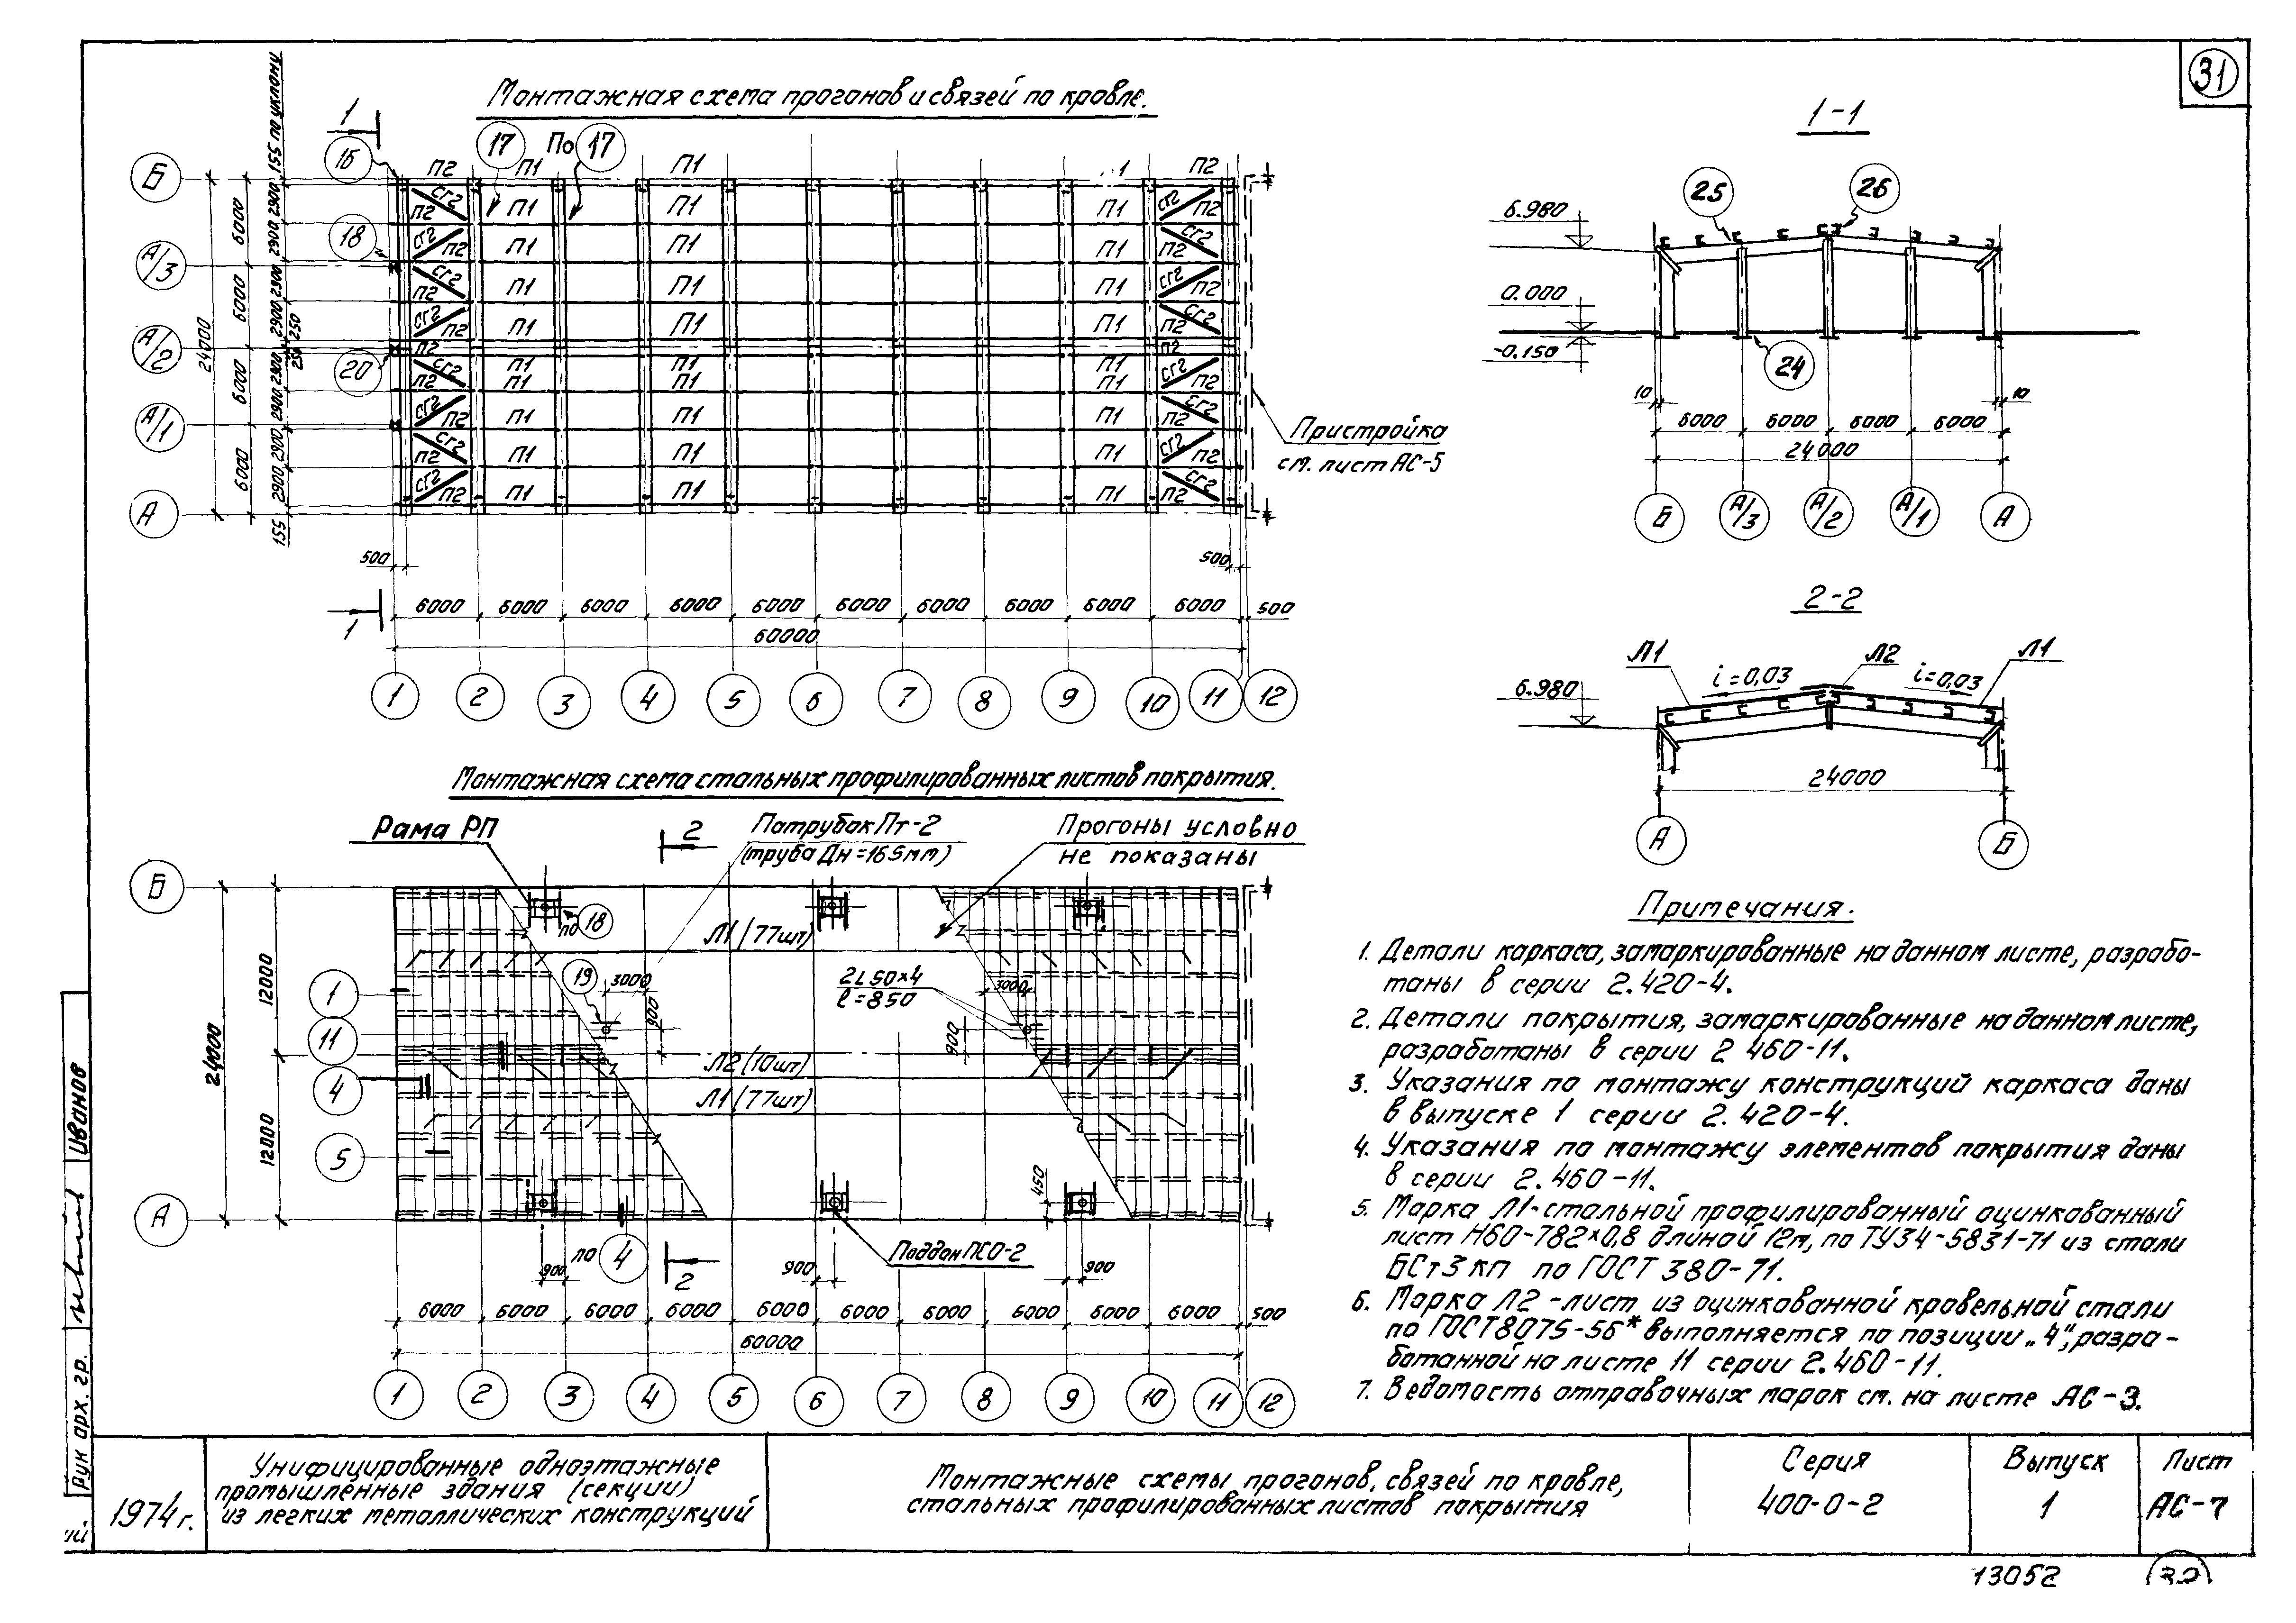 31
Монтажная схема прогонов и связей по кровле.
1
16
17
По 17
П2 П1 П1 П1 П2
Б
А/3
А/2
А/1
А
18
20
24000
6000 6000 6000 6000
155 по уклону
2900 2900 2900 2900 250 250 2900 2900 2900 2900
155
СГ2 П2 П1 П1 П1 СГ2 П2
СГ2 П2 П1 П1 П1 СГ2 П2
СГ2 П2 П1 П1 П1 СГ2 П2
СГ2 П2 П1 П1 П1 СГ2 П2
П2 П1 П1 П1 П2
СГ2 П2 П1 П1 П1 СГ2 П2
СГ2 П2 П1 П1 П1 СГ2 П2
СГ2 П2 П1 П1 П1 СГ2 П2
СГ2 П2 П1 П1 П1 СГ2 П2
Пристройка
см. лист АС-5
500 500
6000 6000 6000 6000 6000 6000 6000 6000 6000 6000 500
1
60000
1 2 3 4 5 6 7 8 9 10 11 12
1-1
25 26
6.980
0.000
-0.150
24
10 10
6000 6000 6000 6000
24000
Б А/3 А/2 А/1 А
2-2
Л1 Л2 Л1
i=0,03 i=0,03
6.980
24000
А Б
Монтажная схема стальных профилированных листов покрытия.
Рама РП
2
Патрубок Пт-2
(труба Дн=165мм)
Прогоны условно
не показаны
Б
по 18
Л1 (77шт)
19
3000
900
2L50×4
l=850
3000
900
1
11
4
5
Л2 (10шт)
Л1 (77шт)
12000
12000
24000
450
А
по 4
2
Поддон ПСО-2
900 900 900
6000 6000 6000 6000 6000 6000 6000 6000 6000 6000 500
60000
1 2 3 4 5 6 7 8 9 10 11 12
Примечания.
1. Детали каркаса, замаркированные на данном листе, разрабо-
таны в серии 2.420-4.
2. Детали покрытия, замаркированные на данном листе,
разработаны в серии 2 460-11.
3. Указания по монтажу конструкций каркаса даны
в выпуске 1 серии 2.420-4.
4. Указания по монтажу элементов покрытия даны
в серии 2.460-11.
5. Марка Л1-стальной профилированный оцинкованный
лист Н60-782×0,8 длиной 12м, по ТУ34-5831-71 из стали
БСт3 кп по ГОСТ 380-71.
6. Марка Л2 -лист из оцинкованной кровельной стали
по ГОСТ8075-56* выполняется по позиции „4", разра-
ботанной на листе 11 серии 2.460-11.
7. Ведомость отправочных марок см. на листе АС-3.
Рук арх. гр. Иванов
1974г.
Унифицированные одноэтажные
промышленные здания (секции)
из легких металлических конструкций
Монтажные схемы прогонов, связей по кровле,
стальных профилированных листов покрытия
Серия
400-0-2
Выпуск
1
Лист
АС-7
13052
32